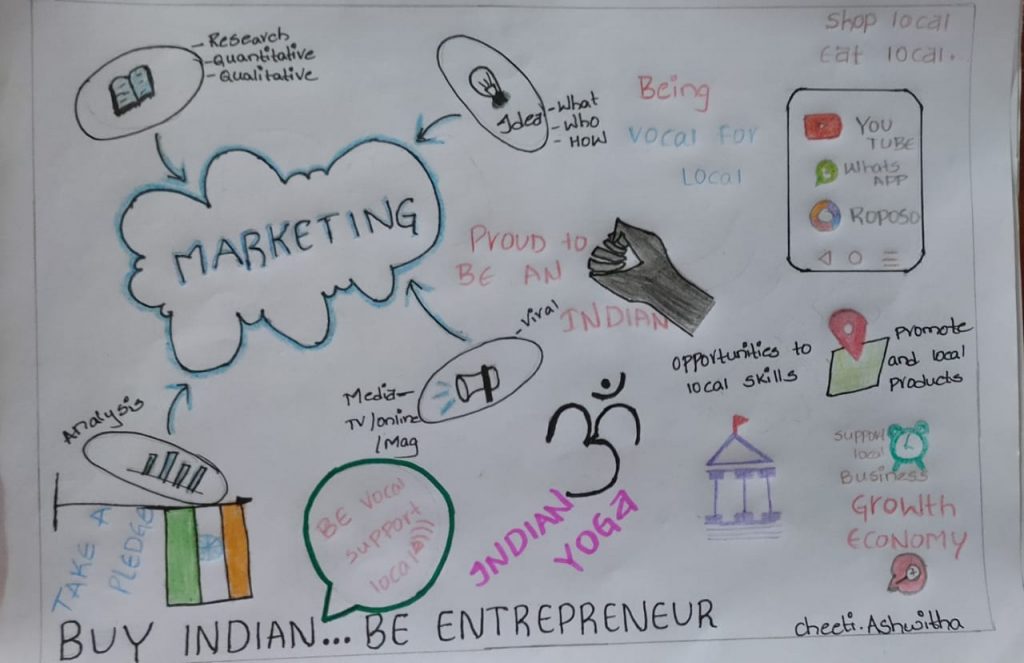 - Research
- Quantitative
- Qualitative
Idea
- What
- Who
- HOW
Shop local
Eat local.
Being
VOCAL FOR
LOCAL
YOU
TUBE
WHATS
APP
ROPOSO
MARKETING
PROUD TO
BE AN
INDIAN
- Viral
Media-
TV/online
/Mag
opportunities to
local skills
promote
and local
products
Analysis
TAKE A
PLEDGE
BE VOCAL
support
local
ॐ
INDIAN
YOGA
SUPPORT
local
Business
Growth
ECONOMY
BUY INDIAN... BE ENTREPRENEUR
cheeti.Ashwitha